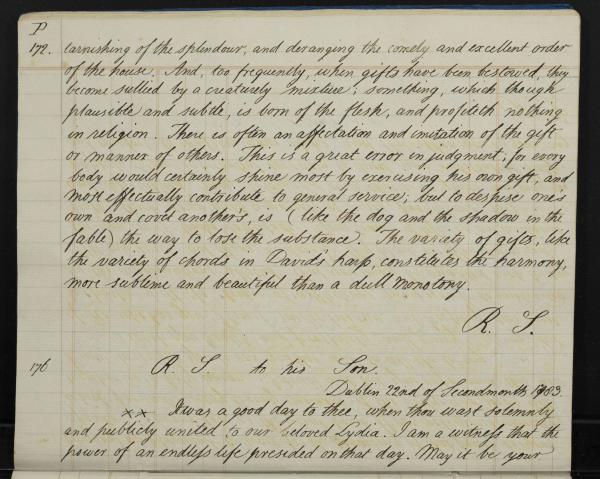 P
172. tarnishing of the splendour, and deranging the comely and excellent order
of the house. And, too frequently, when gifts have been bestowed, they
become sullied by a creaturely mixture; something, which though
plausible and subtle, is born of the flesh, and profiteth nothing
in religion. There is often an affectation and imitation of the gift
or manner of others. This is a great error in judgment; for every
body would certainly shine most by exercising his own gift, and
most effectually contribute to general service; but to despise one's
own and covet another's, is (like the dog and the shadow in the
fable) the way to lose the substance. The variety of gifts, like
the variety of chords in David's harp, constitutes the harmony,
more sublime and beautiful than a dull monotony.
R. S.
176 R. S. to his Son.
Dublin 22nd of Secondmonth 1783.
xx It was a good day to thee, when thou wast solemnly
and publicly united to our beloved Lydia. I am a witness that the
power of an endless life presided on that day. May it be your